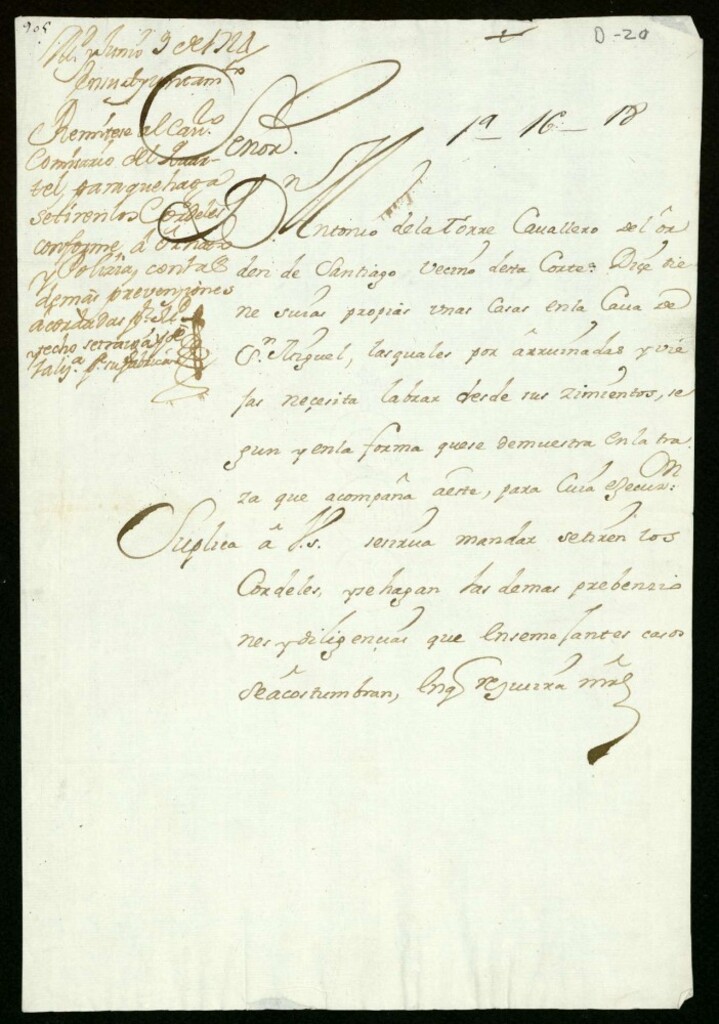 D-20
1ª 16 - 18
Md. y Junio 3 de
En su Ayuntamto
Remitese al Cavo.
Comisario del Quar-
tel, para que haga
se tiren los Cordeles
conforme, a Ornato
y Policia, con las
demas prevenciones
acordadas
recho
Señor.
Dn Antonio de la Torre Cavallero del or
den de Santiago, vecino desta Corte: Dize tie
ne suias propias unas Casas en la Cava de
Sn. Miguel, las quales por arruinadas y vie
jas neçesita labrar desde sus zimientos, se
gun y en la forma que se demuestra en la tra
za que acompaña a este, para Cuia egecuzon
Suplica a V.S. se sirva mandar se tiren los
Cordeles, y se hagan las demas prebenzio
nes y diligencias que en semejantes casos
se acostumbran, en q reziuira mrd